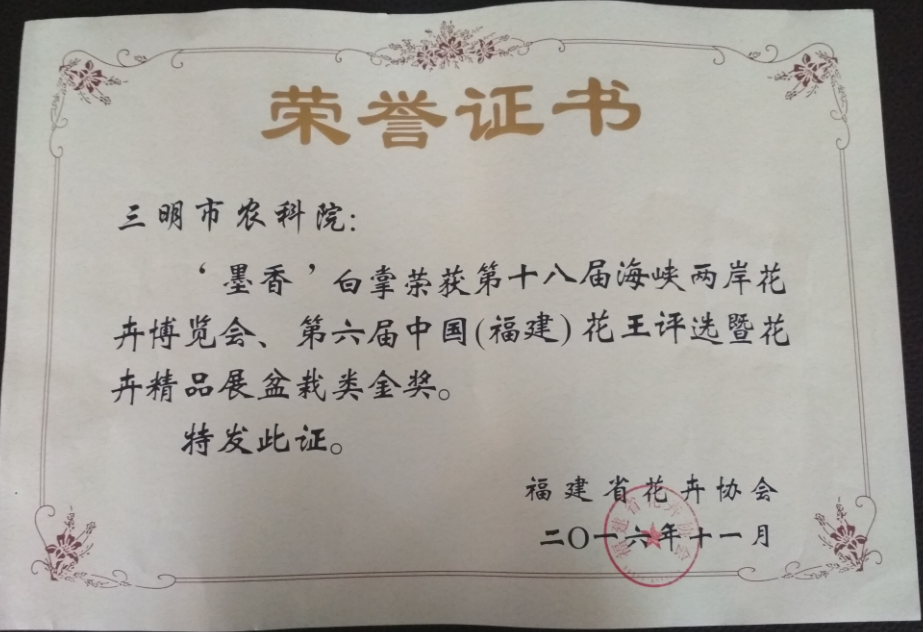 荣誉证书
三明市农科院：
‘墨香’白掌荣获第十八届海峡两岸花
卉博览会、第六届中国(福建)花王评选暨花
卉精品展盆栽类金奖。
特发此证。
福建省花卉协会
二〇一六年十一月
福建省花卉协会